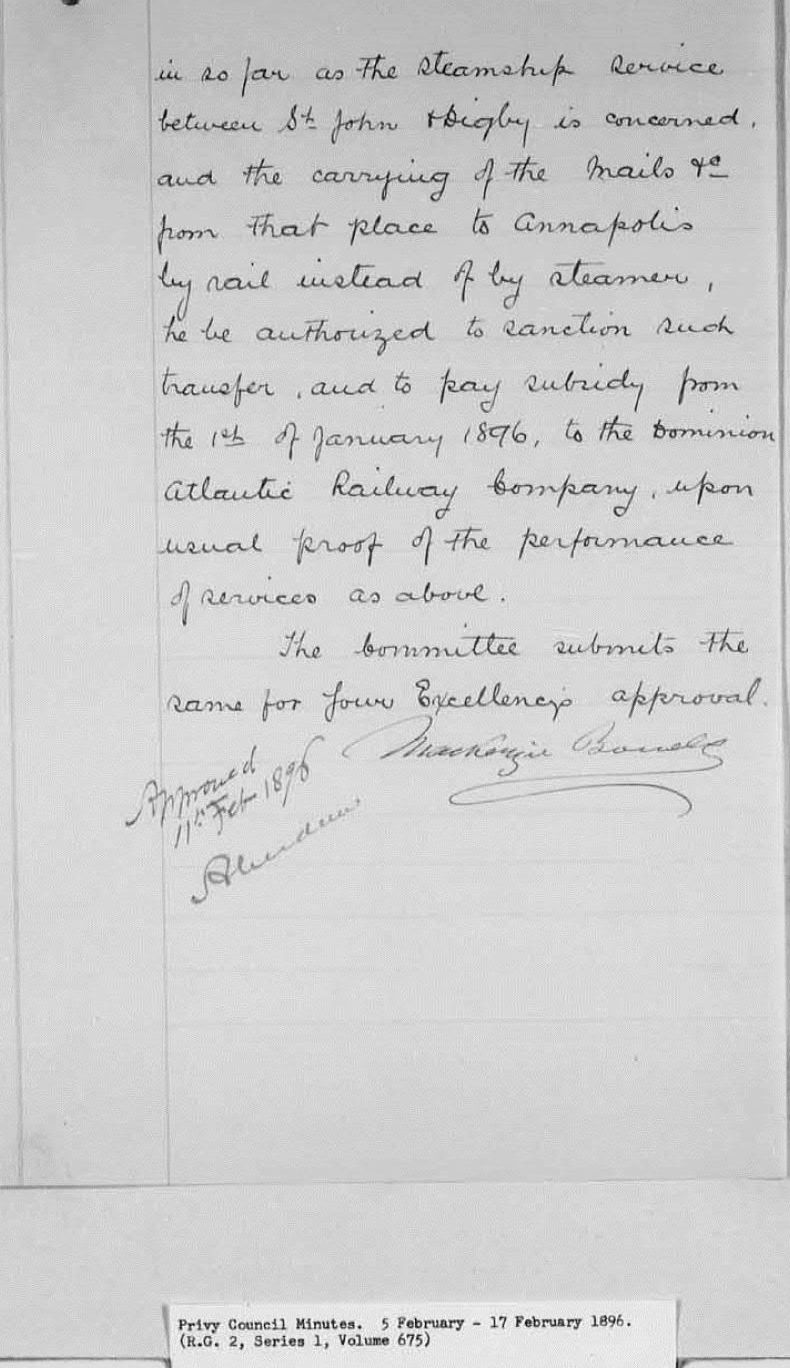 in so far as the steamship service
between St John & Digby is concerned,
and the carrying of the Mails &c
from that place to Annapolis
by rail instead of by steamer,
he be authorized to sanction such
transfer, and to pay subsidy from
the 1st of January 1896, to the Dominion
Atlantic Railway Company, upon
usual proof of the performance
of services as above.
The Committee submits the
same for Your Excellency's approval.
Mackenzie Bowell
Approved
11th Feb 1896
Aberdeen
Privy Council Minutes. 5 February - 17 February 1896.
(R.G. 2, Series 1, Volume 675)